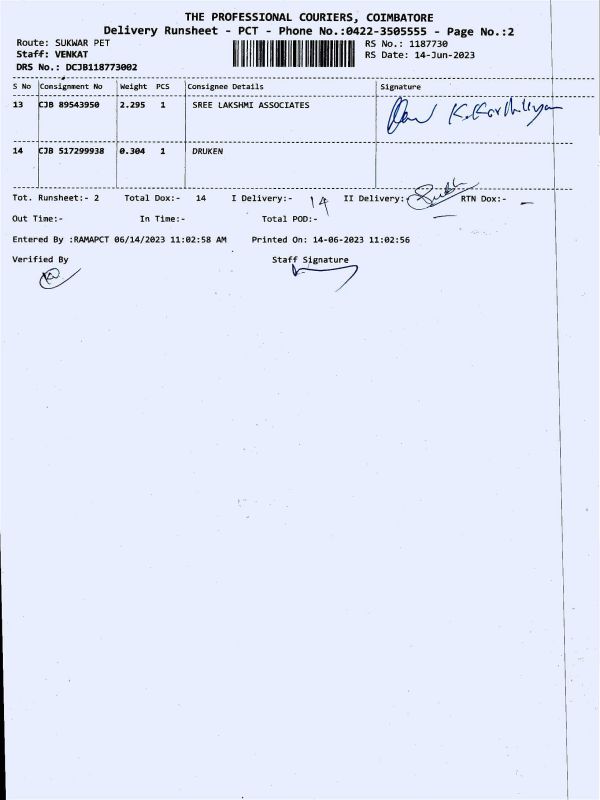 THE PROFESSIONAL COURIERS, COIMBATORE
Delivery Runsheet - PCT - Phone No.:0422-3505555 - Page No.:2
Route: SUKWAR PET RS No.: 1187730
Staff: VENKAT RS Date: 14-Jun-2023
DRS No.: DCJB118773002
S No Consignment No Weight PCS Consignee Details Signature
13 CJB 89543950 2.295 1 SREE LAKSHMI ASSOCIATES
14 CJB 517299938 0.304 1 DRUKEN
Tot. Runsheet:- 2 Total Dox:- 14 I Delivery:- 14 II Delivery:- RTN Dox:- –
Out Time:- In Time:- Total POD:-
Entered By :RAMAPCT 06/14/2023 11:02:58 AM Printed On: 14-06-2023 11:02:56
Verified By Staff Signature